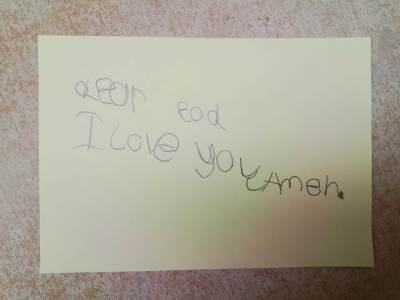 dear God
I Love you
Amen.